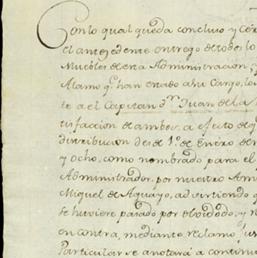 Con lo qual queda concluso y Cer
el antesedente entrego de todos lo
Muebles de esta Administracion
Alamo qe han estado a su Cargo, lo
te a el Capitan Dn Juan de la
tisfaccion de ambos, a efecto de q
distribucion desde 1o de Enero de
y ocho, como nombrado para el
Administrador por nuestro Am
Miguel de Aguayo, advirtiendo q
se huviere pasado por olvido, y
en contra, mediante reclamo jus
Particular se anotará a continu